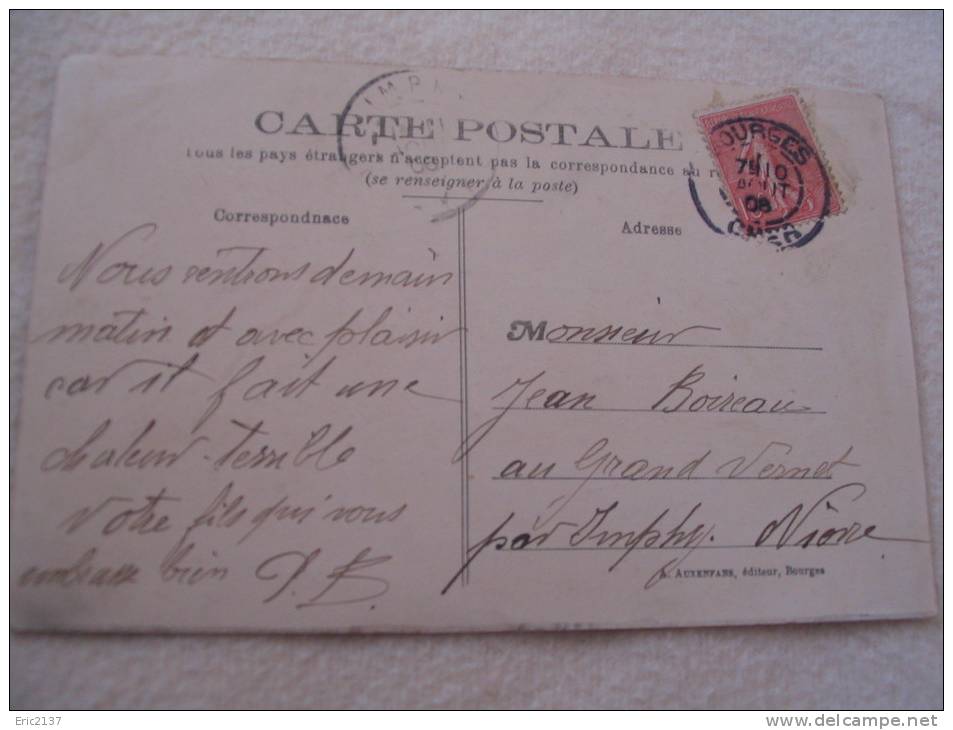 CARTE POSTALE
Tous les pays étrangers n'acceptent pas la correspondance au
(se renseigner à la poste)
Correspondnace
Nous rentrons demain
matin et avec plaisir
car il fait une
chaleur terrible
Votre fils qui vous
embrasse bien P. B.
Adresse
BOURGES
08
CHER
Monsieur
Jean Boireau
au Grand Vernet
par Imphy. Nièvre
A. AUXENFANS, éditeur, Bourges
Eric2137
www.delcampe.net